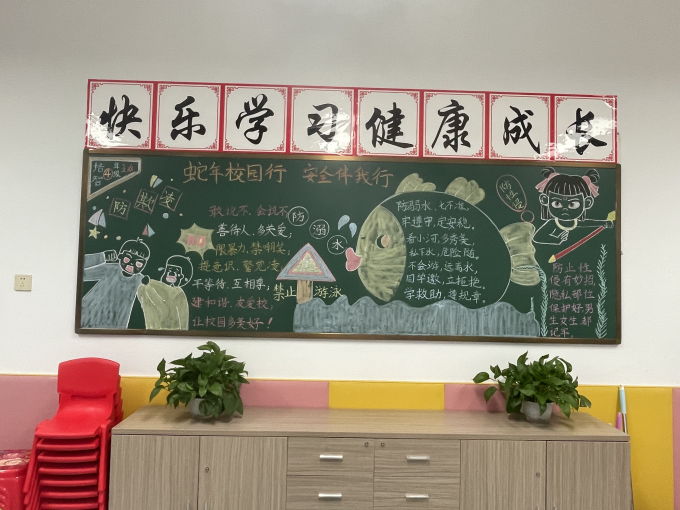 快乐学习健康成长
蛇年校园行 安全伴我行
4年级
防欺凌
敢说不,会说不
善待人,多关爱;
限暴力,禁嘲笑;
提意识,警觉凌
平等待,互相尊;
建和谐,友爱校;
让校园多美好!
防溺水
禁止游泳
防溺水,七不准,
牢遵守,定安稳。
看小河,多秀美,
私下水,危险随。
不会游,远离水,
同学邀,立拒绝。
学救助,遵规章。
防性侵
防止性
侵有妙招,
隐私部位
保护好男
生女生都
记牢。